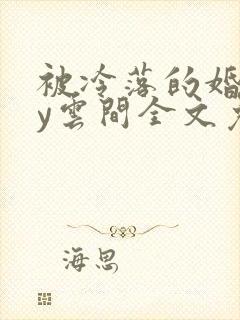 被冷落的婚
y雲間全文
海思